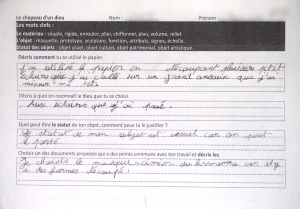 Le chapeau d'un dieu Nom : Prénom :
Les mots clefs :
Le matériau : souple, rigide, enrouler, plier, chiffonner, plan, volume, relief.
L'objet : maquette, prototype, sculpture, fonction, attributs, signes, échelle.
Statut des objets : objet usuel, objet culturel, objet patrimonial, objet artistique.
Décris comment tu as utilisé le papier.
J'ai utilisé le papier en découpant plusieurs petit
que j'ai collé sur un grand que j'ai
mis
Décris à quoi on reconnaît le dieu que tu as choisi.
Aux que j'ai posé.
Quel peut être le statut de ton objet, comment peux tu le justifier ?
Le statut de mon objet est usuel car on peut
le porté.
Choisis un des documents proposés qui a des points communs avec ton travail et décris les.
Je choisis le masque-cimier des car il y
a des formes découpé.